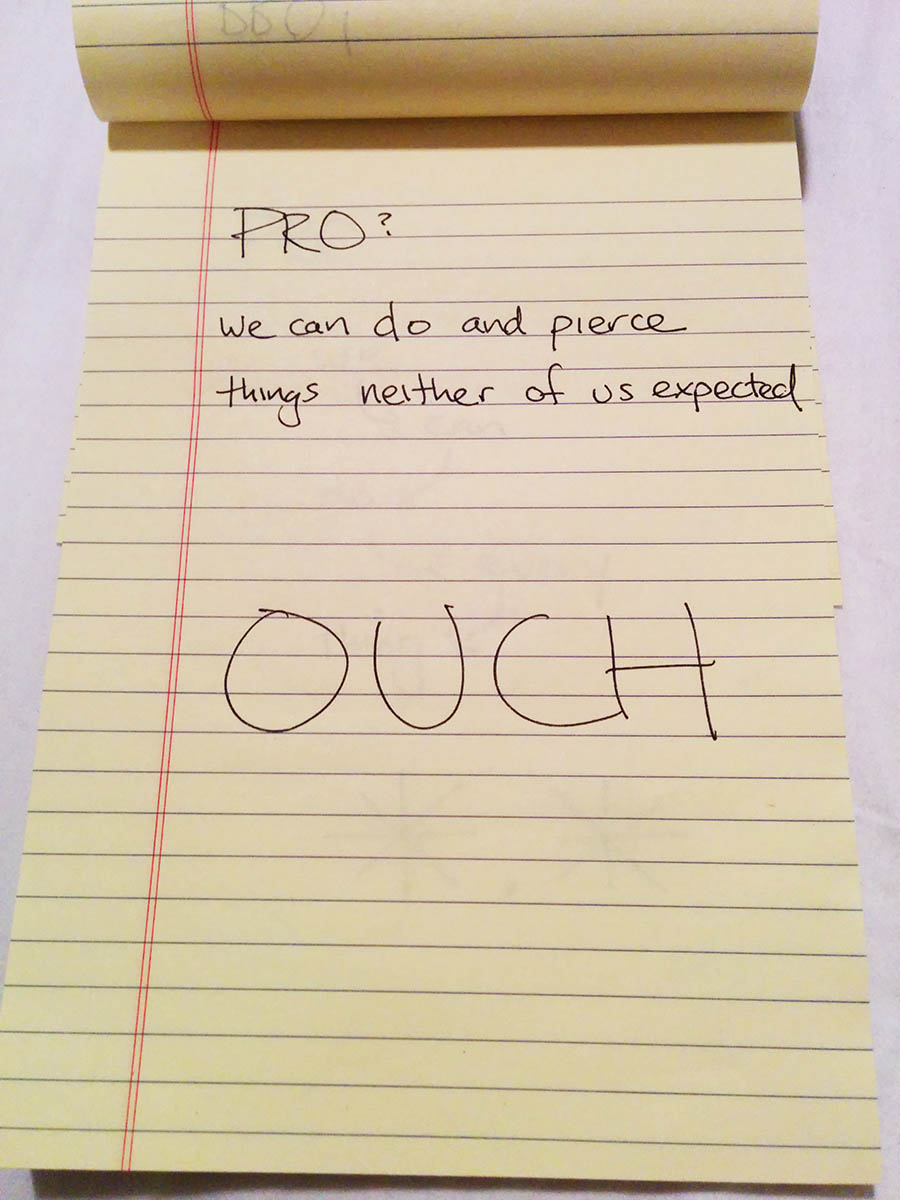 PRO?
we can do and pierce
things neither of us expected
OUCH